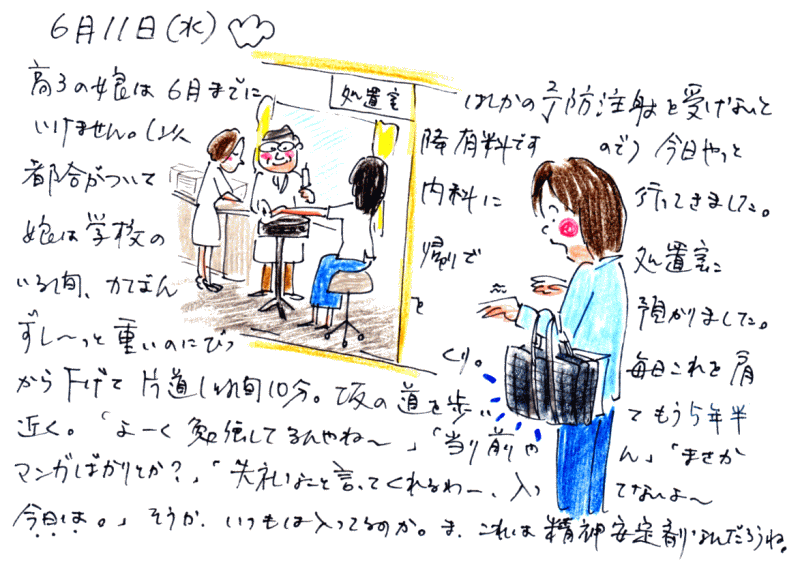 6月11日(水)
処置室
高3の娘は6月までに はしかの予防注射を受けないと
いけません。(以降有料です ので)今日やっと
都合がついて 内科に 行ってきました。
娘は学校の 帰りで 処置室に
いる間、かばん を 預かりました。
ずし〜っと重いのにびっくり。 毎日これを肩
から下げて片道1時間10分。坂の道を歩い てもう5年半
近く。「よーく勉強してるんやね〜」「当り前や ん」「まさか
マンガばかりとか?」「失礼なこと言ってくれるわー、入っ てないよ〜
今日は。」そうか、いつもは入ってるのか。ま、これは精神安定剤なんだろうね。